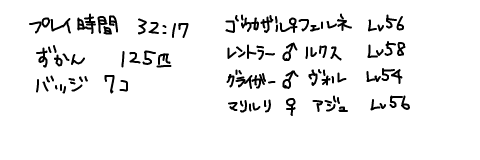 プレイ時間 32:17
ずかん 125匹
バッジ 7コ
ゴウカザル♀フェルネ Lv56
レントラー♂ ルクス Lv58
グライガー♂ ヴォル Lv54
マリルリ ♀ アジュ Lv56